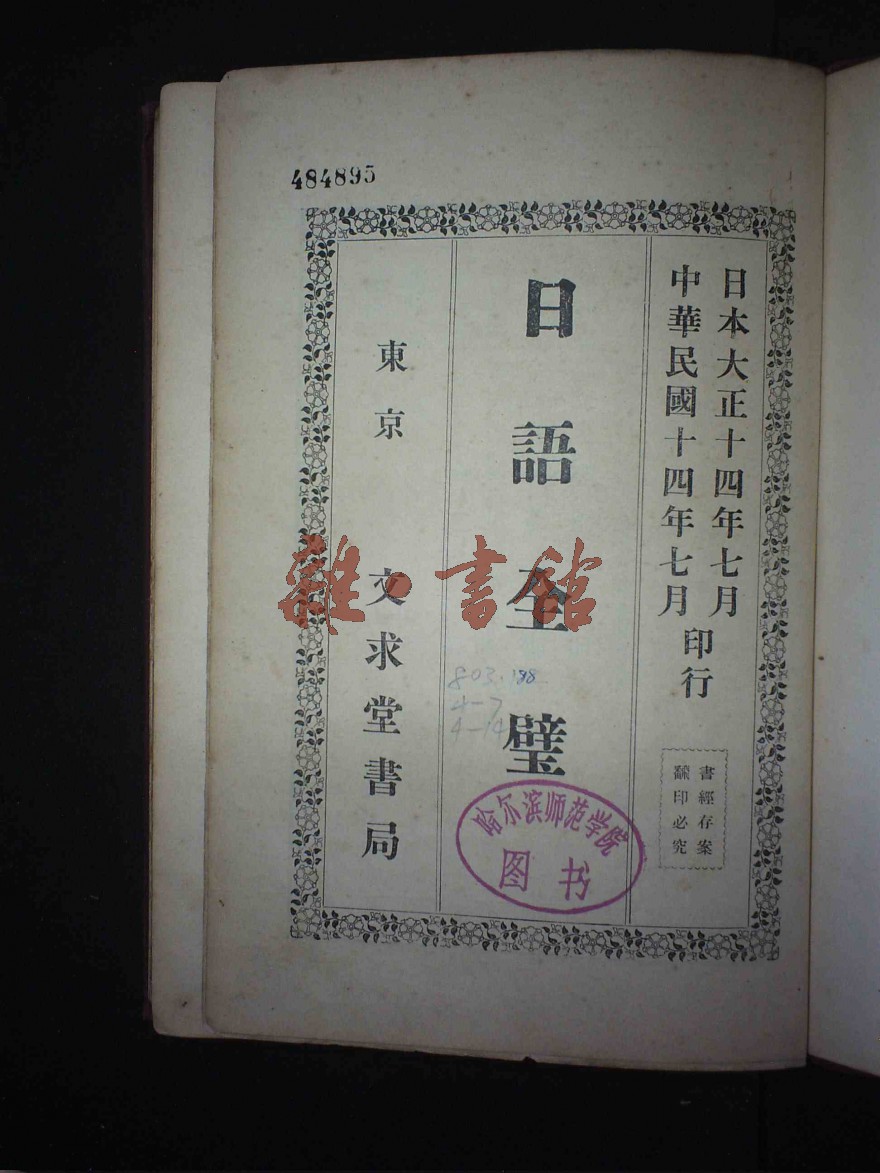 484895
日本大正十四年七月
中華民國十四年七月
印行
書經存案
翻印必究
日語全璧
東京 文求堂書局
雜·書館
803.188
4-7
4-14
哈尔滨师范学院
图书